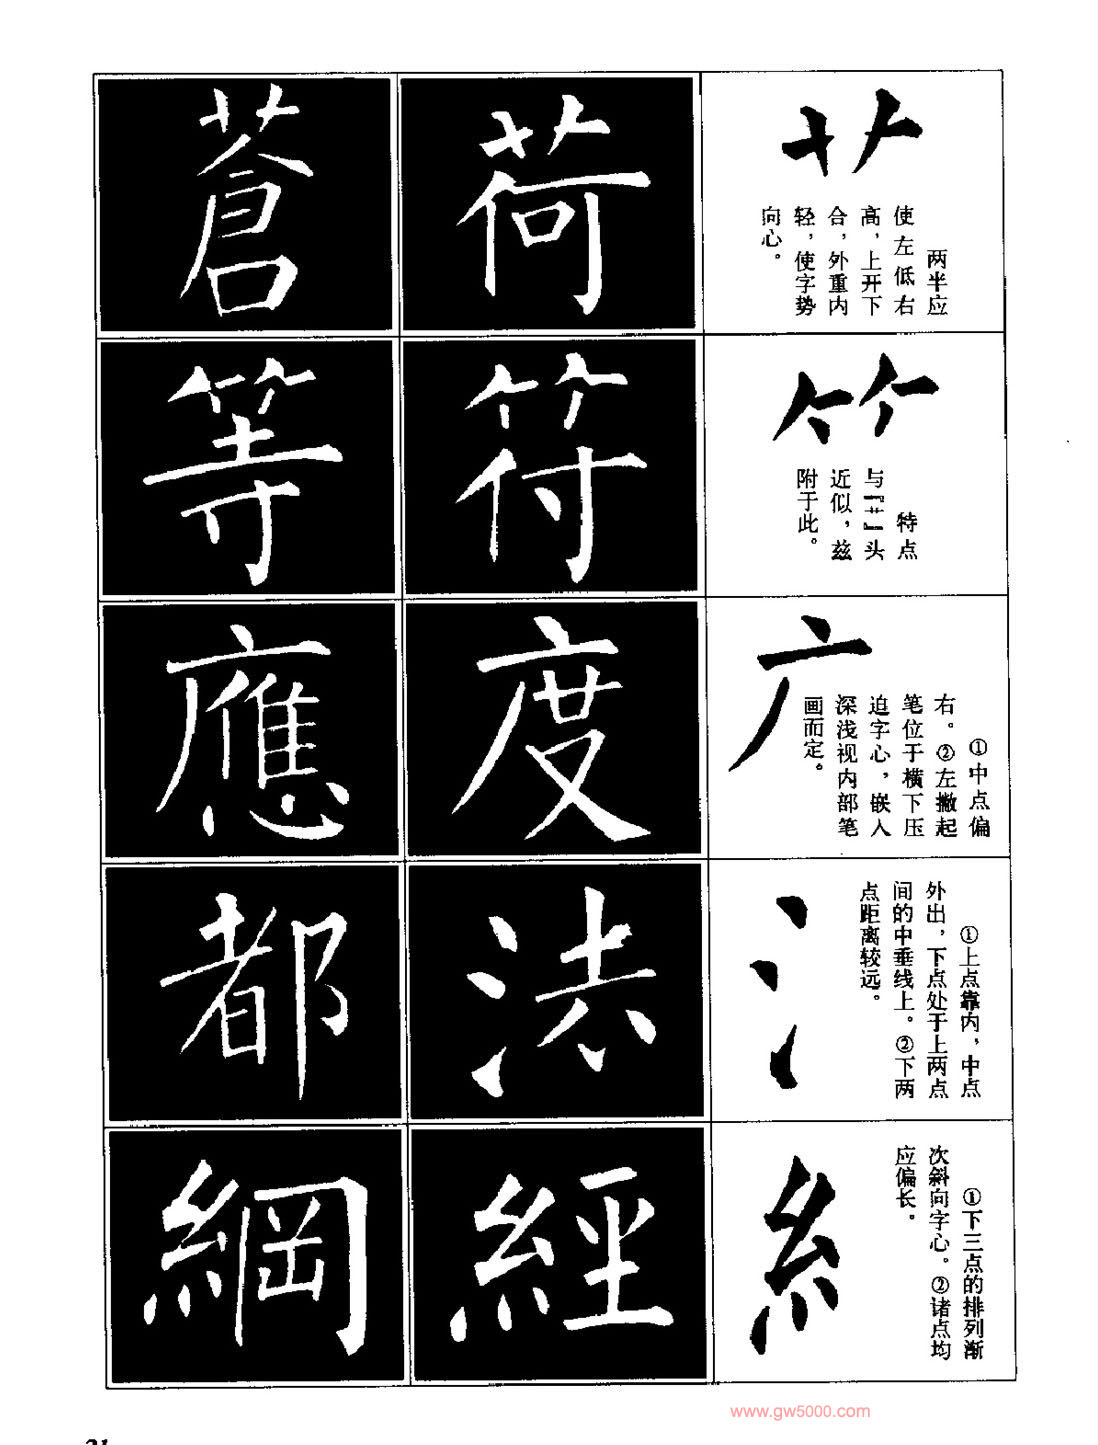 艹
两半应
使左低右
高，上开下
合，外重内
轻，使字势
向心。
荷
蒼
⺮
特点
与『艹』头
近似，兹
附于此。
符
等
广
①中点偏
右。②左撇起
笔位于横下压
迫字心，嵌入
深浅视内部笔
画而定。
度
應
氵
①上点靠内，中点
外出，下点处于上两点
间的中垂线上。②下两
点距离较远。
法
都
糹
①下三点的排列渐
次斜向字心。②诸点均
应偏长。
經
綱
www.gw5000.com